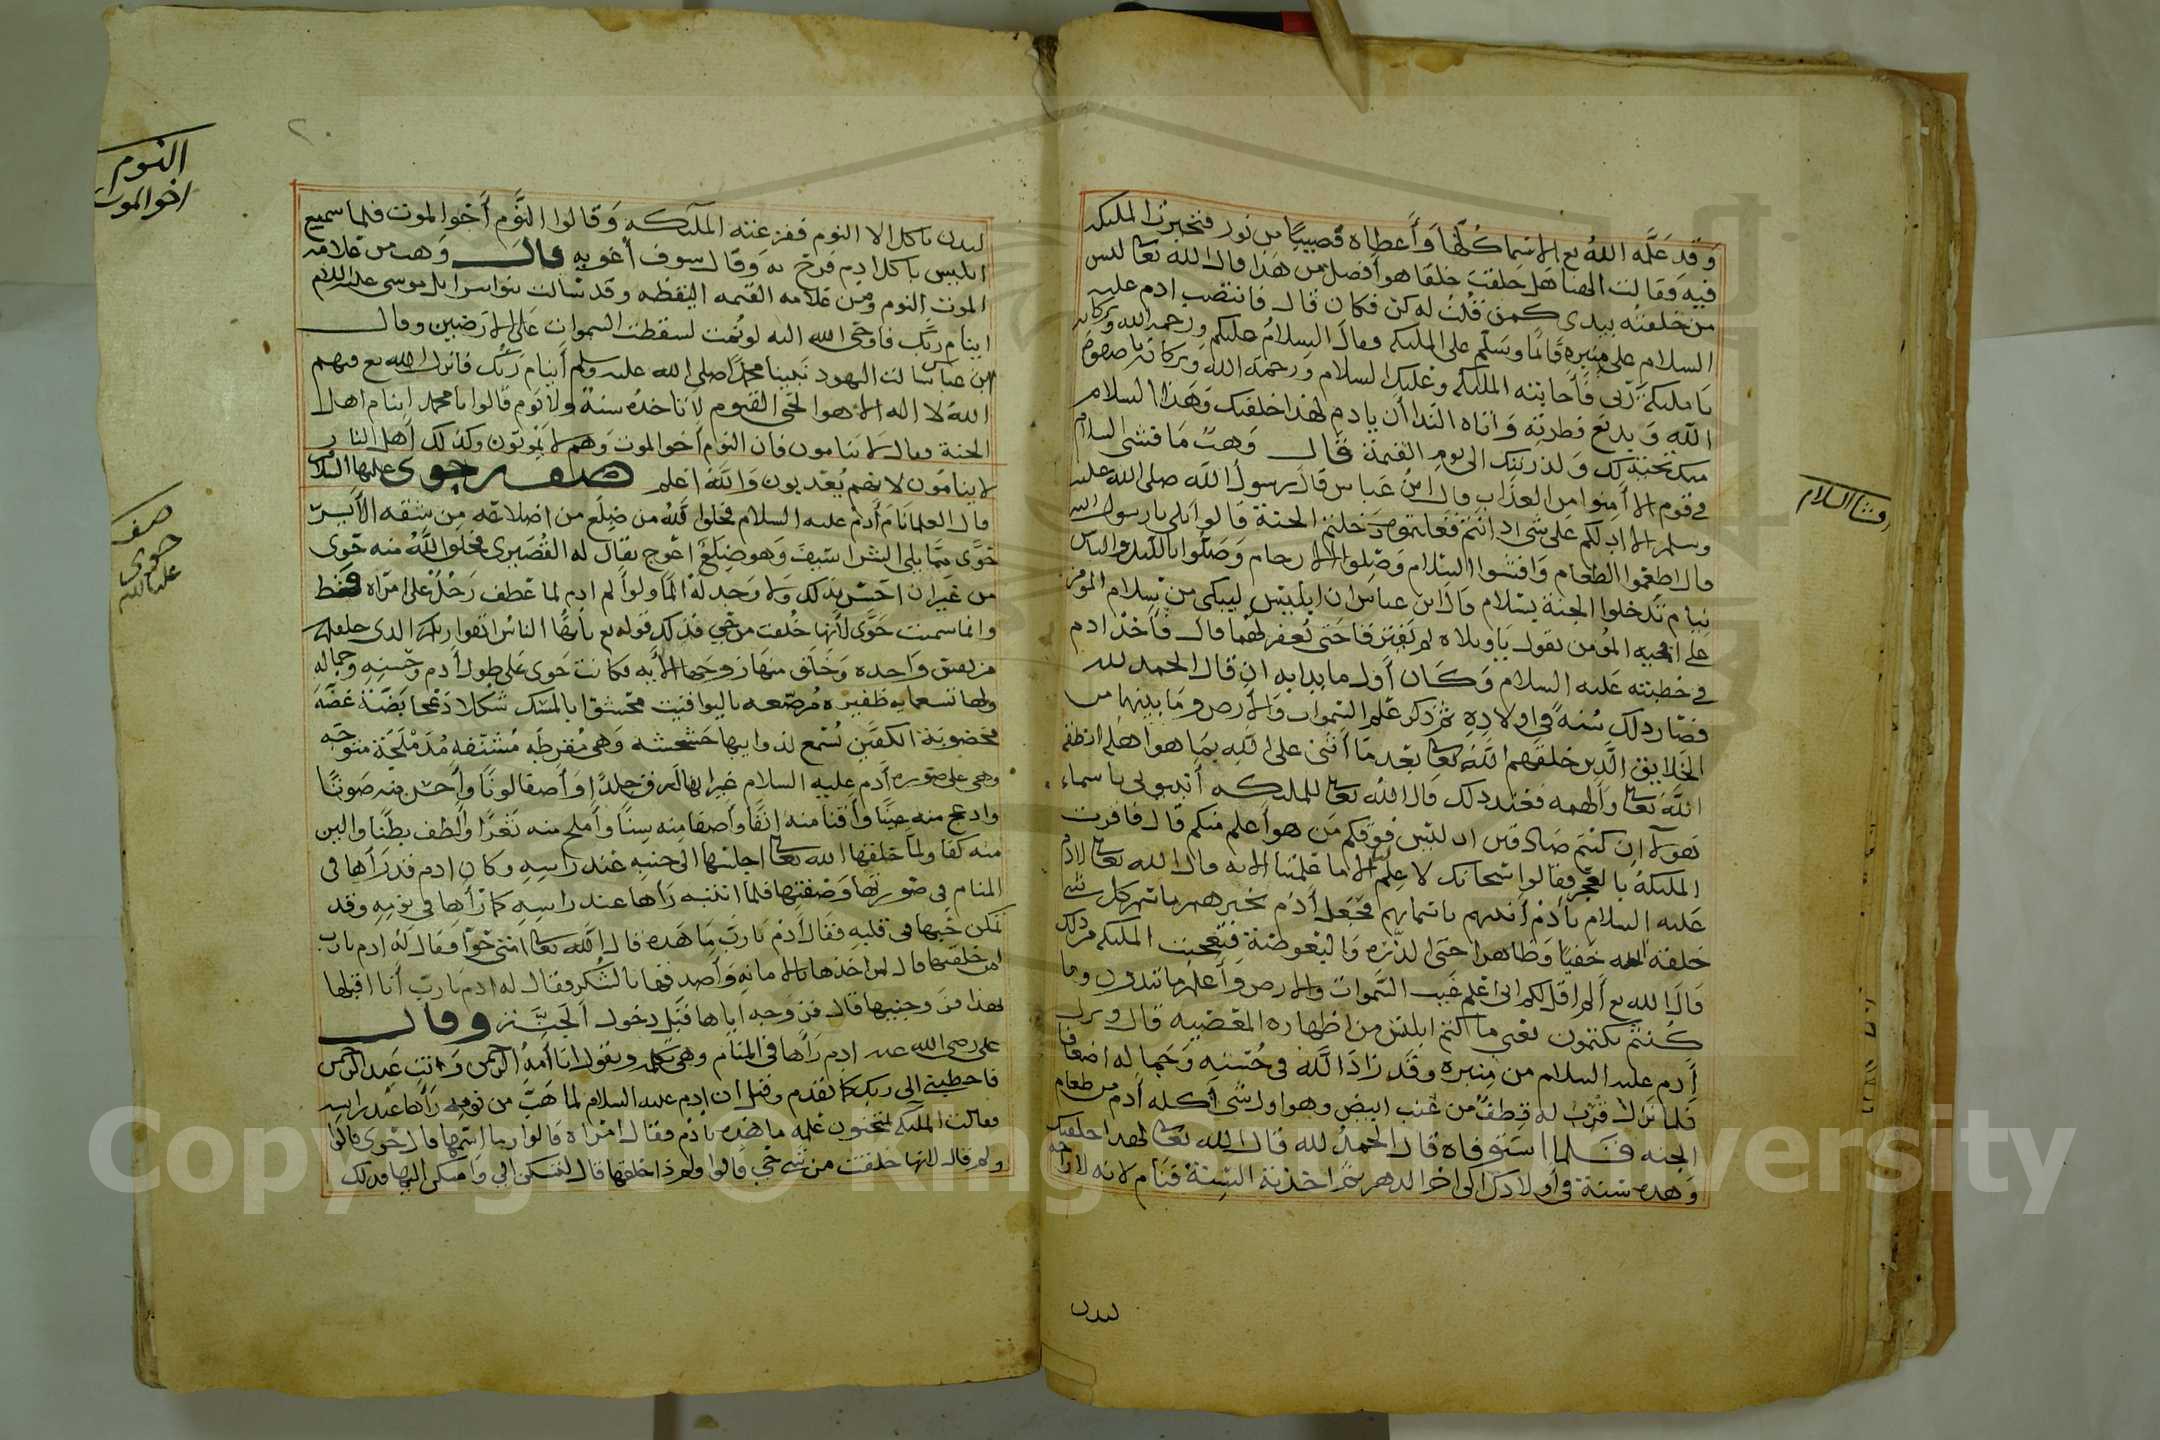 وقد علمه الله تع الاسما كلها وأعطاه قضيبا من نور فتحيرت الملىكه
فيه فقالت الهنا هل خلقت خلقا هو أفضل من هذا قال الله تعا ليس
من خلقته بيدى كمن قلت له كن فكان قال فانتصب ادم عليه
السلام على منبره قائما وسلم على الملىكه وقال السلام عليكم ورحمه الله وبركاته
يا ملىكة ربى فأجابته الملىكه وعليك السلام ورحمة الله وبركاته يا صفوة
الله وبديع فطرته وأتاه الندا أن يادم لهذا خلقتك وهذا السلام
تحيتة لك ولذريتك الى يوم القيمة قال وهب ما فشى السلام
في قوم الا أمنوا من العذاب قال ابن عباس قال رسول الله صلى الله عليه
وسلم الا ادلكم على شى اذ انتم فعلتموه دخلتم الجنة قالوا بلى يا رسول الله
قال اطعموا الطعام وافشوا السلام وصلوا الارحام وصلوا بالليل والناس
نيام تدخلوا الجنة بسلام قال ابن عباس ان ابليس ليبكى من سلام المومن
على اخيه المؤمن يقول ياويلاه لم يفترقا حتى يغفر لهما قال فأخذ ادم
في خطبته عليه السلام وكان أول ما بدا به ان قال الحمد لله
فصار ذلك سنه في اولاده ثم ذكر علم السموات والارض وما بينهما من
الخلايق الذين خلقهم الله تعا بعد ما أثنى على الله بما هو اهله انطقه
الله تعا وألهمه فعند ذلك قال الله تعا للملىكه أنبيونى باسماء
هولآ ان كنتم صادقين اد ليس فوقكم من هو أعلم منكم قال فاقرت
الملىكة بالعجز فقالوا سبحانك لا علم لنا الا ما علمتنا الايه قال الله تعا لادم
عليه السلام يا أدم أنبهم باسمايهم فجعل أدم يخبرهم باسم كل شى
خلقه الله خفيا وظاهرا حتى الذره والبعوضة فتعجبت الملىكه من ذلك
قال الله تع ألم اقل لكم انى اعلم غيب السموات والارض وأعلم ما تبدون وما
كنتم تكتمون يعنى ما اكتم ابليس من اظهاره المعصيه قال ونزل
أدم عليه السلام من منبره وقد زاد الله في حسنه وجماله اضعافا
فلما نزل قرب له قطف من عنب ابيض وهو اول شى أكله أدم من طعام
الجنه فلما استوفاه قال الحمد لله قال الله تعا لهذا خلقتك
وهذه سنة في أولادك الى اخر الدهر ثم اخذته السنة فنام لانه لا راحه
لبدن
وفشا السلام
لبدن ياكل الا النوم ففزعته الملآىكه وقالوا النوم أخو الموت فلما سميع
ابليس باكل ادم فرح به وقال سوف أغويه قال وهب من علامه
الموت النوم ومن علامه القيمه اليقظه وقد سالت بنو اسرايل موسى عليه السلام
اينام ربك فاوحى الله اليه لو نمت لسقطت السموات على الارضين وقال
ابن عباس سالت اليهود نبينا محمدا صلى الله عليه وسلم أينام ربك فانزل الله تع فيهم
الله لا اله الا هو الحى القيوم لا تاخذه سنة ولا نوم قالوا يا محمد اينام اهل
الجنة فقال لا ينامون فان النوم أخو الموت وهم لا يموتون وكذلك أهل النار
لا ينامون لانهم يعذبون والله اعلم صفه حوى عليها السلام
قال العلما نام أدم عليه السلام فخلق الله من ضلع من اضلاعه من شقه الأيسر
حوى مما يلى الشراسيف وهو ضلع اعوج يقال له القصيرى فخلق الله منه حوى
من غير ان احس بذلك ولا وجد له ألما ولو ألم ادم لما عطف رجل على امراه قط
وانما سميت حوى لأنها خلقت من حي فذلك قوله تع يا أيها الناس اتقوا ربكم الذى خلقكم
من نفس واحده وخلق منها زوجها الايه فكانت حوى على طول أدم وحسنه وجماله
ولها تسعمايه ظفيره مرصعه باليواقيت محشوا بالمسك شكلا دعجا بضة غضه
مخضوبة الكفين تسمع لذوايبها خشخشه وهى مقرطه مشنفه مدملجة متوجه
وهى على صوره أدم عليه السلام غير انها أرق جلدا وأصفا لونا وأحسن منه صوتا
وادعج منه عينا وأقنا منه انفا وأصفا منه سنا وأملح منه ثغرا وألطف بطنا وألين
منه كفا ولما خلقها الله تعا اجلسها الى جنبه عند راسه وكان ادم قد رأها في
المنام في صورتها وصفتها فلما انتبه رأها عند راسه كما رأها في نومه وقد
تمكن حبها في قلبه فقال أدم يا رب ما هده قال الله تعا امتى حوا فقال له ادم يا رب
لمن خلقتها قال لمن اخذها بالامانه وأصدقها بالشكر فقال له ادم يا رب أنا اقبلها
بهذا فزوجنيها قال فزوجه اياها قبل دخول الجنة وقال
على رضى الله عنه ادم رأها في المنام وهى تكلمه وتقول انا أمه الرحمن وانت عبد الرحمن
فاخطبنى الى ربك كما تقدم وقيل ان ادم عليه السلام لما هب من نومه رأها عند راسه
فقالت الملىكه يمتحنون علمه ما هذه يادم فقال امراة قالوا وما اسمها قال حوى قالوا
ولم قال لانها خلقت من شى حي قالوا ولم ذا خلقها قال لتسكن الي واسكن اليها فذلك
النوم
اخو الموت
صفه
حوى
عليها السلام